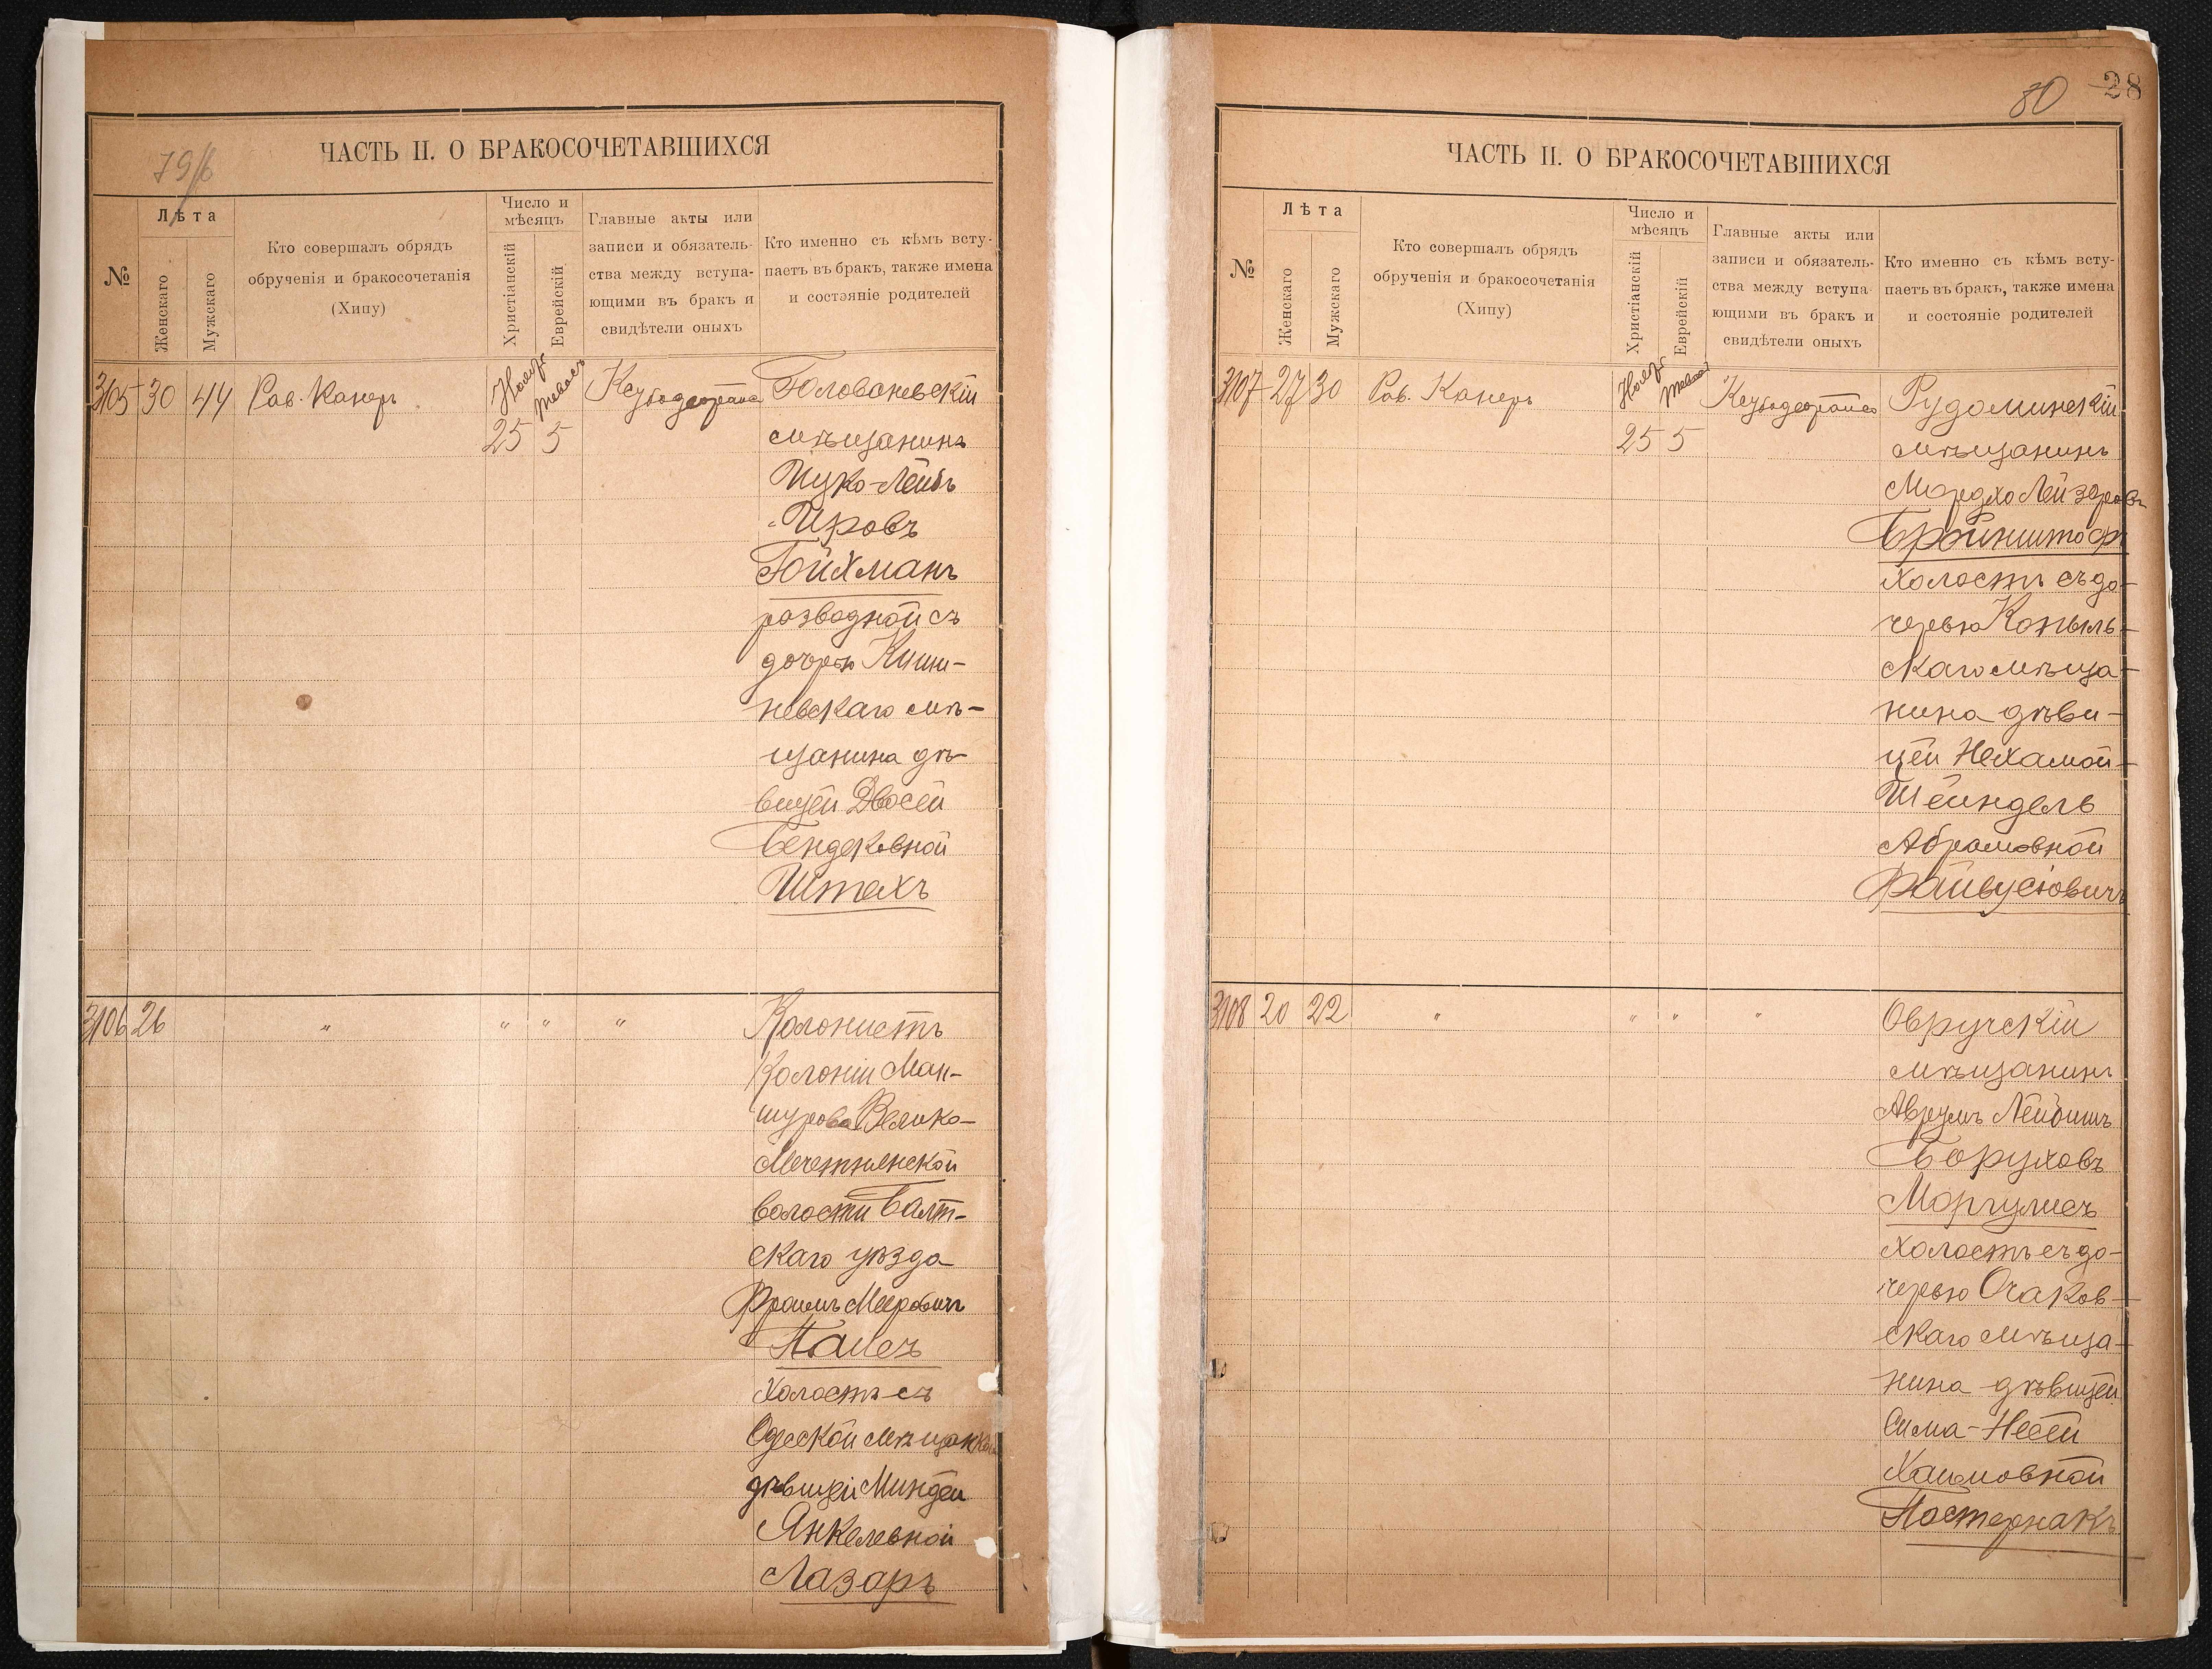 79/б
ЧАСТЬ II. О БРАКОСОЧЕТАВШИХСЯ
№
Лѣта
Женскаго
Мужскаго
Кто совершалъ обрядъ
обрученія и бракосочетанія
(Хипу)
Число и
мѣсяцъ
Христіанскій
Еврейскій
Главные акты или
записи и обязатель-
ства между вступа-
ющими въ бракъ и
свидѣтели оныхъ
Кто именно съ кѣмъ всту-
паетъ въ бракъ, также имена
и состояніе родителей
3105 30 44 Рав. Канеръ 25 5 Голованевскій
мѣщанинъ
Ицко-Лейбъ
Ойхманъ
разводной съ
дочерью Киши-
невскаго мѣ-
щанина дѣ-
вицей Двосей
Бендековной
Штехъ
3106 26 " " " " Колонистъ
Колоніи Ман-
шурова Велико-
Мечетнянской
волости Балт-
скаго уѣзда
Фроимъ Мееровичъ
Палесъ
Холостъ съ
Одесской мѣщанкой
дѣвицей Миндей
Янкелевной
Лазаръ
80 28
ЧАСТЬ II. О БРАКОСОЧЕТАВШИХСЯ
№
Лѣта
Женскаго
Мужскаго
Кто совершалъ обрядъ
обрученія и бракосочетанія
(Хипу)
Число и
мѣсяцъ
Христіанскій
Еврейскій
Главные акты или
записи и обязатель-
ства между вступа-
ющими въ бракъ и
свидѣтели оныхъ
Кто именно съ кѣмъ всту-
паетъ въ бракъ, также имена
и состояніе родителей
3107 27 30 Рав. Канеръ 25 5 Рудоминскій
мѣщанинъ
Мордхо Лейзеровъ
Холостъ съ до-
черью Копыль-
скаго мѣща-
нина дѣви-
цей Нехамой-
Шейндель
Абрамовной
Файвусіовичъ
3108 20 22 " " " " Овручскій
мѣщанинъ
Аврумъ Лейбишъ
Боруховъ
Моргулисъ
Холостъ съ до-
черью Очаков-
скаго мѣща-
нина дѣвицей
Сима-Несей
Хаимовной
Пастернакъ